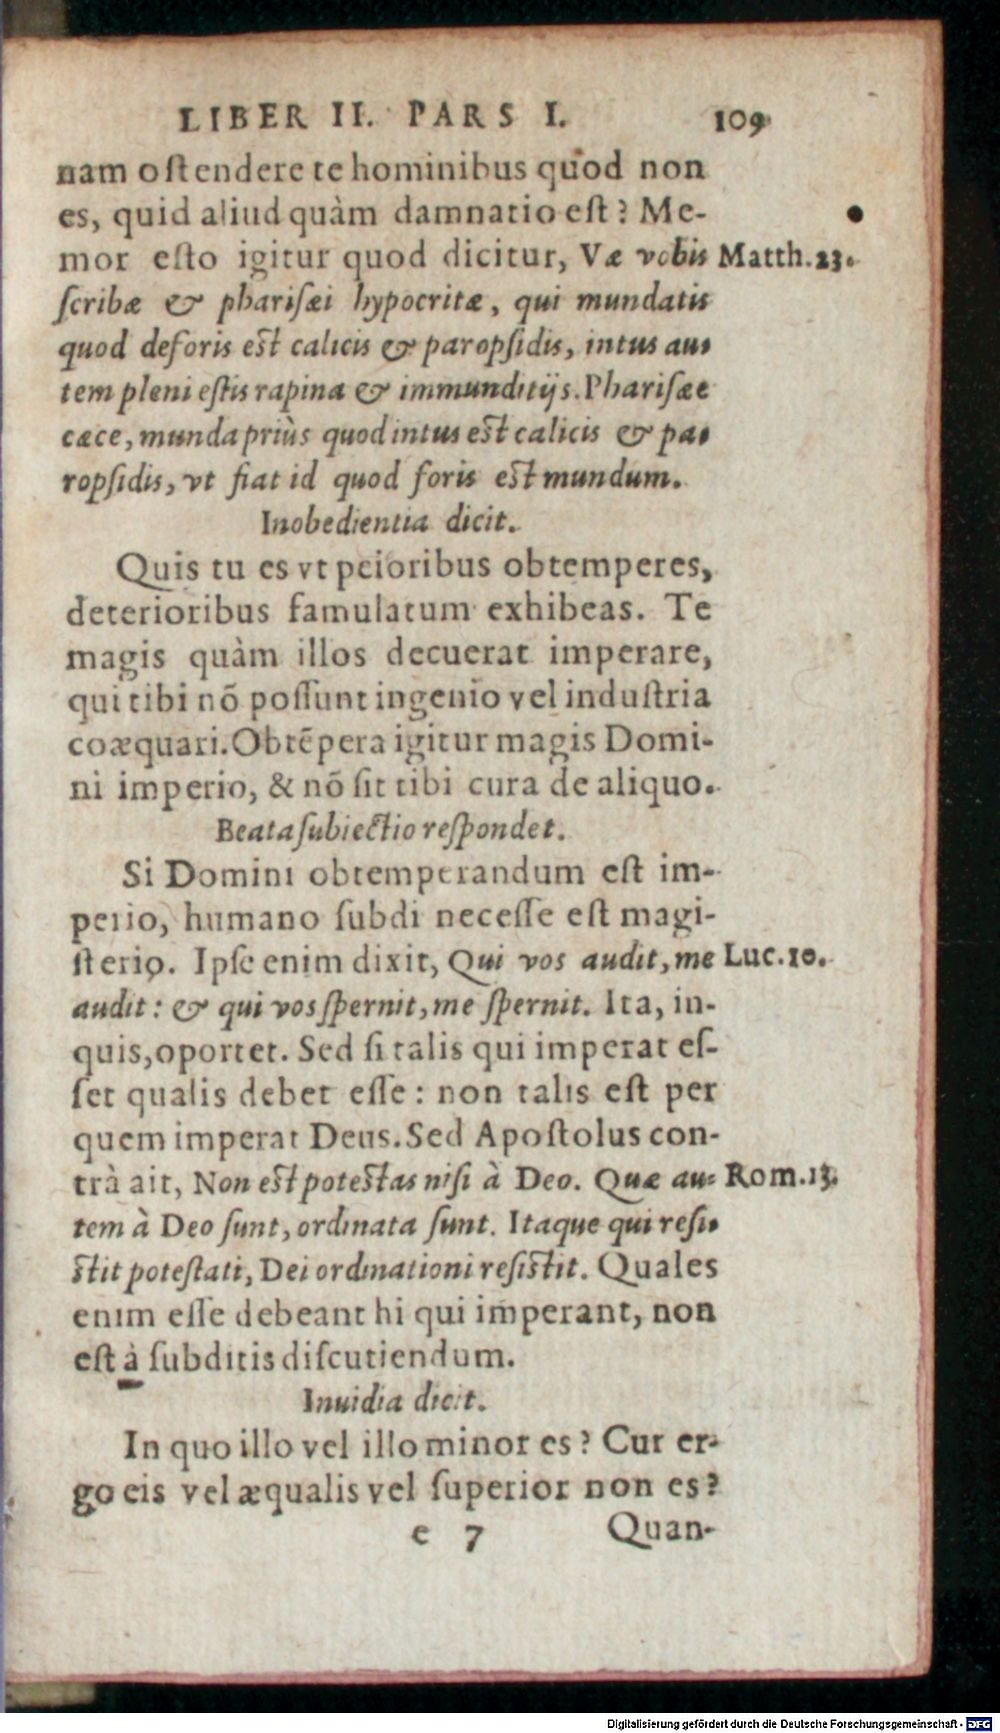 LIBER II. PARS I. 109
nam oſtendere te hominibus quod non
es, quid aliud quàm damnatio eſt? Me-
mor eſto igitur quod dicitur, Væ vobis Matth.23.
ſcribæ & phariſæi hypocritæ, qui mundatis
quod deforis eſt calicis & paropſidis, intus au-
tem pleni eſtis rapina & immunditijs. Phariſæe
cæce, munda priùs quod intus eſt calicis & pa-
ropſidis, vt fiat id quod foris eſt mundum.
Inobedientia dicit.
Quis tu es vt peioribus obtemperes,
deterioribus famulatum exhibeas. Te
magis quàm illos decuerat imperare,
qui tibi nō poſſunt ingenio vel induſtria
coæquari. Obtēpera igitur magis Domi-
ni imperio, & nō ſit tibi cura de aliquo.
Beata ſubiectio reſpondet.
Si Domini obtemperandum eſt im-
perio, humano ſubdi neceſſe eſt magi-
ſterio. Ipſe enim dixit, Qui vos audit, me Luc.10.
audit: & qui vos ſpernit, me ſpernit. Ita, in-
quis, oportet. Sed ſi talis qui imperat eſ-
ſet qualis debet eſſe: non talis eſt per
quem imperat Deus. Sed Apoſtolus con-
trà ait, Non eſt poteſtas niſi à Deo. Quæ au- Rom.13.
tem à Deo ſunt, ordinata ſunt. Itaque qui reſi-
ſtit poteſtati, Dei ordinationi reſiſtit. Quales
enim eſſe debeant hi qui imperant, non
eſt à ſubditis diſcutiendum.
Inuidia dicit.
In quo illo vel illo minor es? Cur er-
go eis vel æqualis vel ſuperior non es?
e 7 Quan-
Digitalisierung gefördert durch die Deutsche Forschungsgemeinschaft - DFG